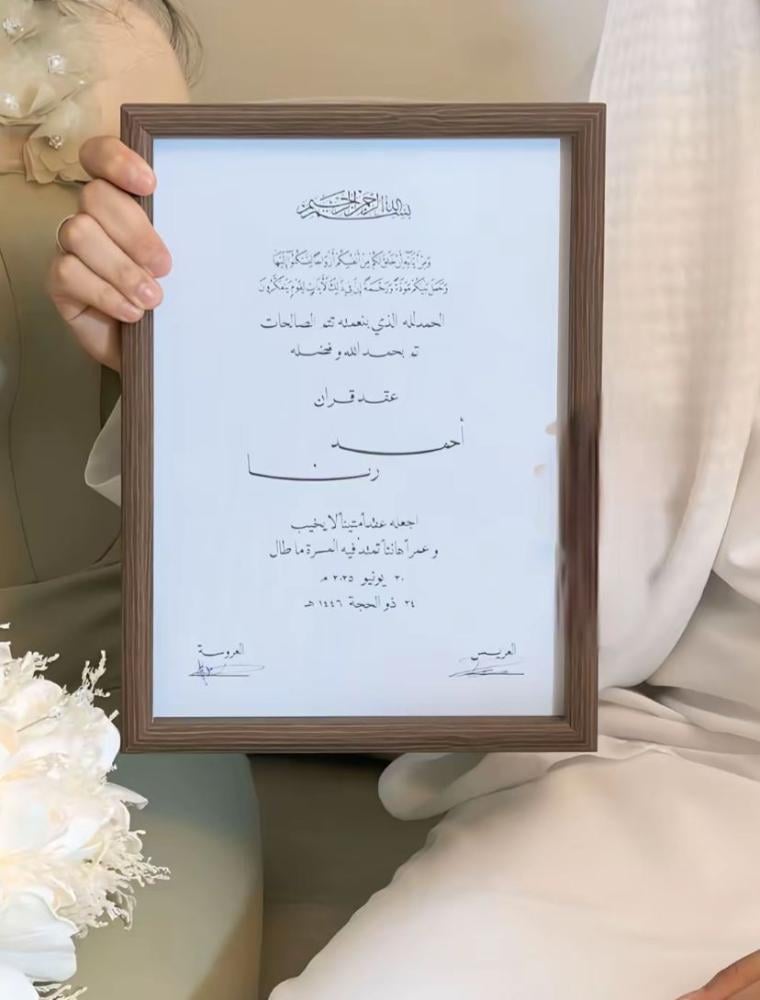 بسم الله الرحمن الرحيم
وَمِنْ آيَاتِهِ أَنْ خَلَقَ لَكُم مِّنْ أَنفُسِكُمْ أَزْوَاجًا لِّتَسْكُنُوا إِلَيْهَا
وَجَعَلَ بَيْنَكُم مَّوَدَّةً وَرَحْمَةً إِنَّ فِي ذَٰلِكَ لَآيَاتٍ لِّقَوْمٍ يَتَفَكَّرُونَ
الحمدلله الذي بنعمته تتم الصالحات
تم بحمد الله و فضله
عقد قران
أحمد
رنا
اجعله عقداً متيناً لا يخيب
و عمراً هانئاً تمتد فيه المسرة ما طال
٣٠ يونيو ٢٠٢٥ م
٢٤ ذو الحجة ١٤٤٦ هـ
العريس
العروسة